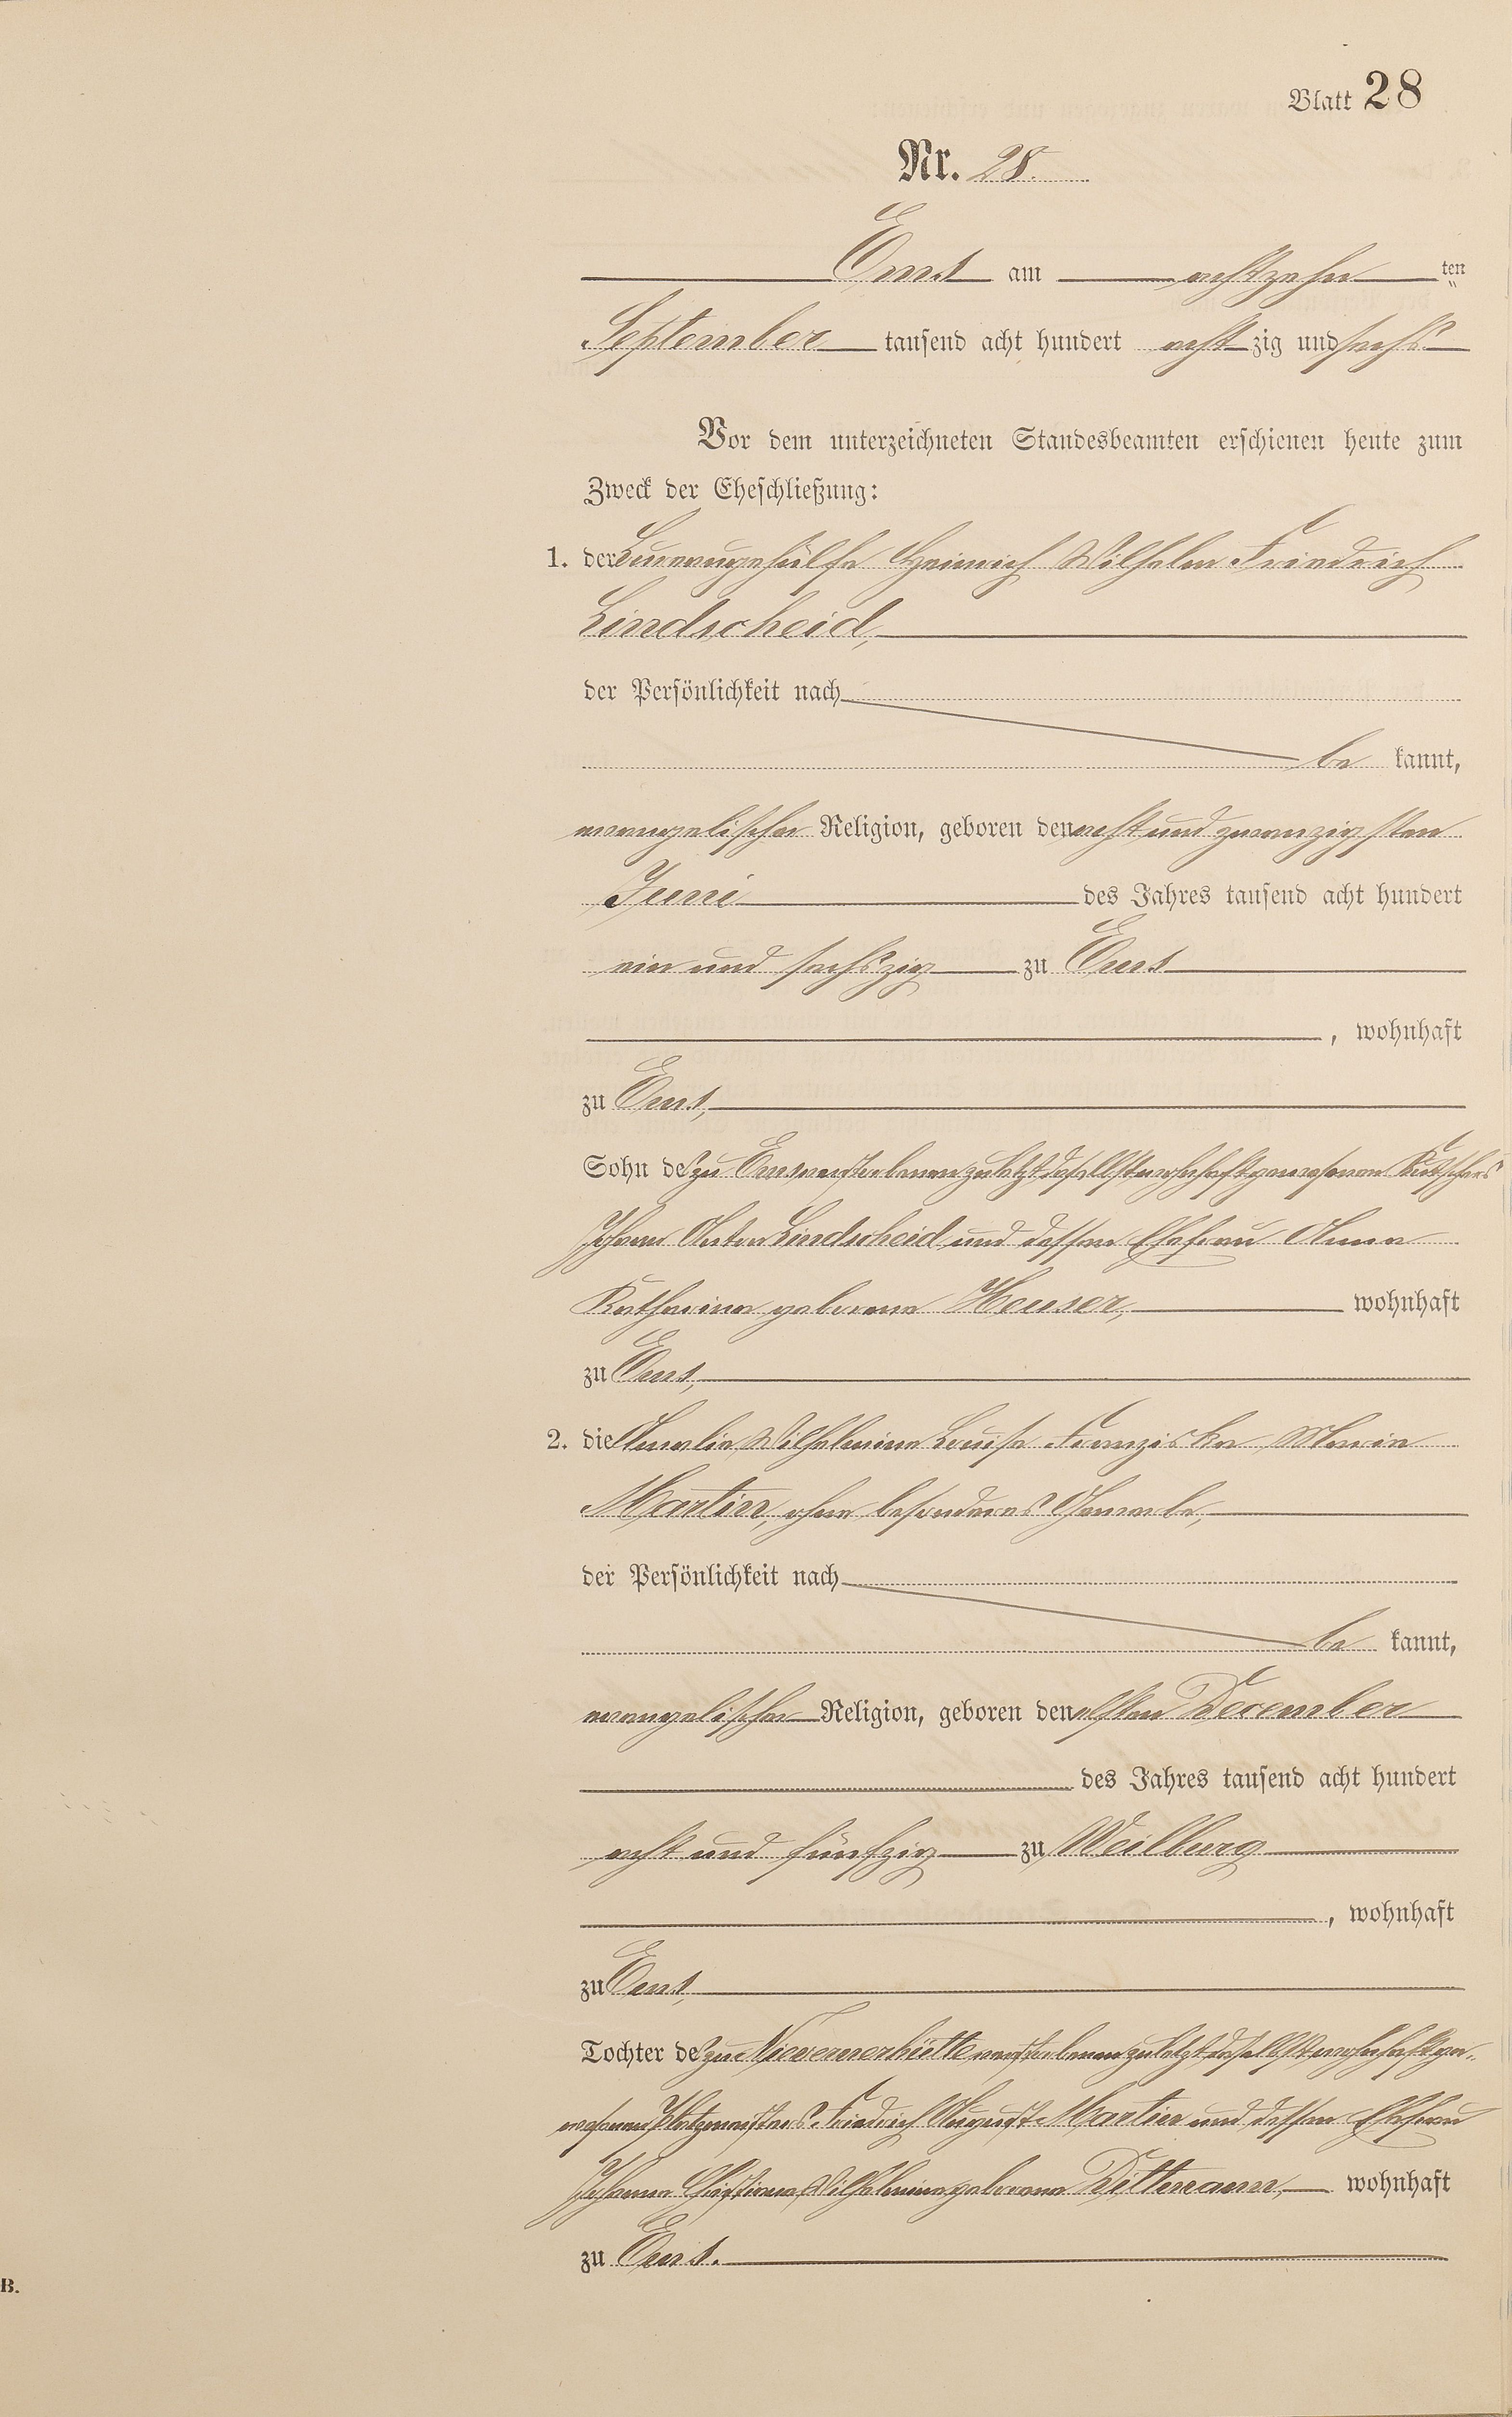 Blatt 28
Nr. 28.
Ems am achtzehn ten
September tausend acht hundert acht zig und sechs
Vor dem unterzeichneten Standesbeamten erschienen heute zum
Zweck der Eheschließung:
1. der Bureaugehülfe Heinrich Wilhelm Friedrich
Lindscheid,
der Persönlichkeit nach
be kannt,
evangelischer Religion, geboren den acht und zwanzigsten
Juni des Jahres tausend acht hundert
ein und sechszig zu Ems
, wohnhaft
zu Ems,
Sohn des zu Ems verstorbenen zuletzt daselbst wohnhaft gewesenen Kutschers
Johann Anton Lindscheid und dessen Ehefrau Anna
Katharina geborene Heuser, wohnhaft
zu Ems,
2. die Amalie Wilhelmine Louise Franziska Maria
Martin, ohne besonderes Gewerbe,
der Persönlichkeit nach
be kannt,
evangelischer Religion, geboren den elften December
des Jahres tausend acht hundert
acht und fünfzig zu Weilburg
, wohnhaft
zu Ems,
Tochter des zu Nievernerhütte verstorbenen zuletzt daselbst wohnhaft ge-
wesenen Platzmeisters Friedrich August Martin und dessen Ehefrau
Johanna Christiane Wilhelmine geborene Dittmann, wohnhaft
zu Ems.
B.